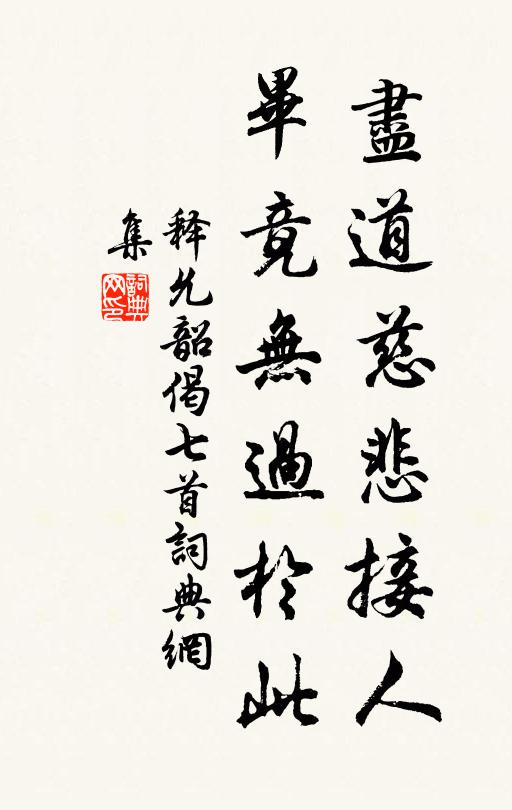 盡道慈悲接人
畢竟無過於此
释允韶偈七首詞典網
集
詞典
网印